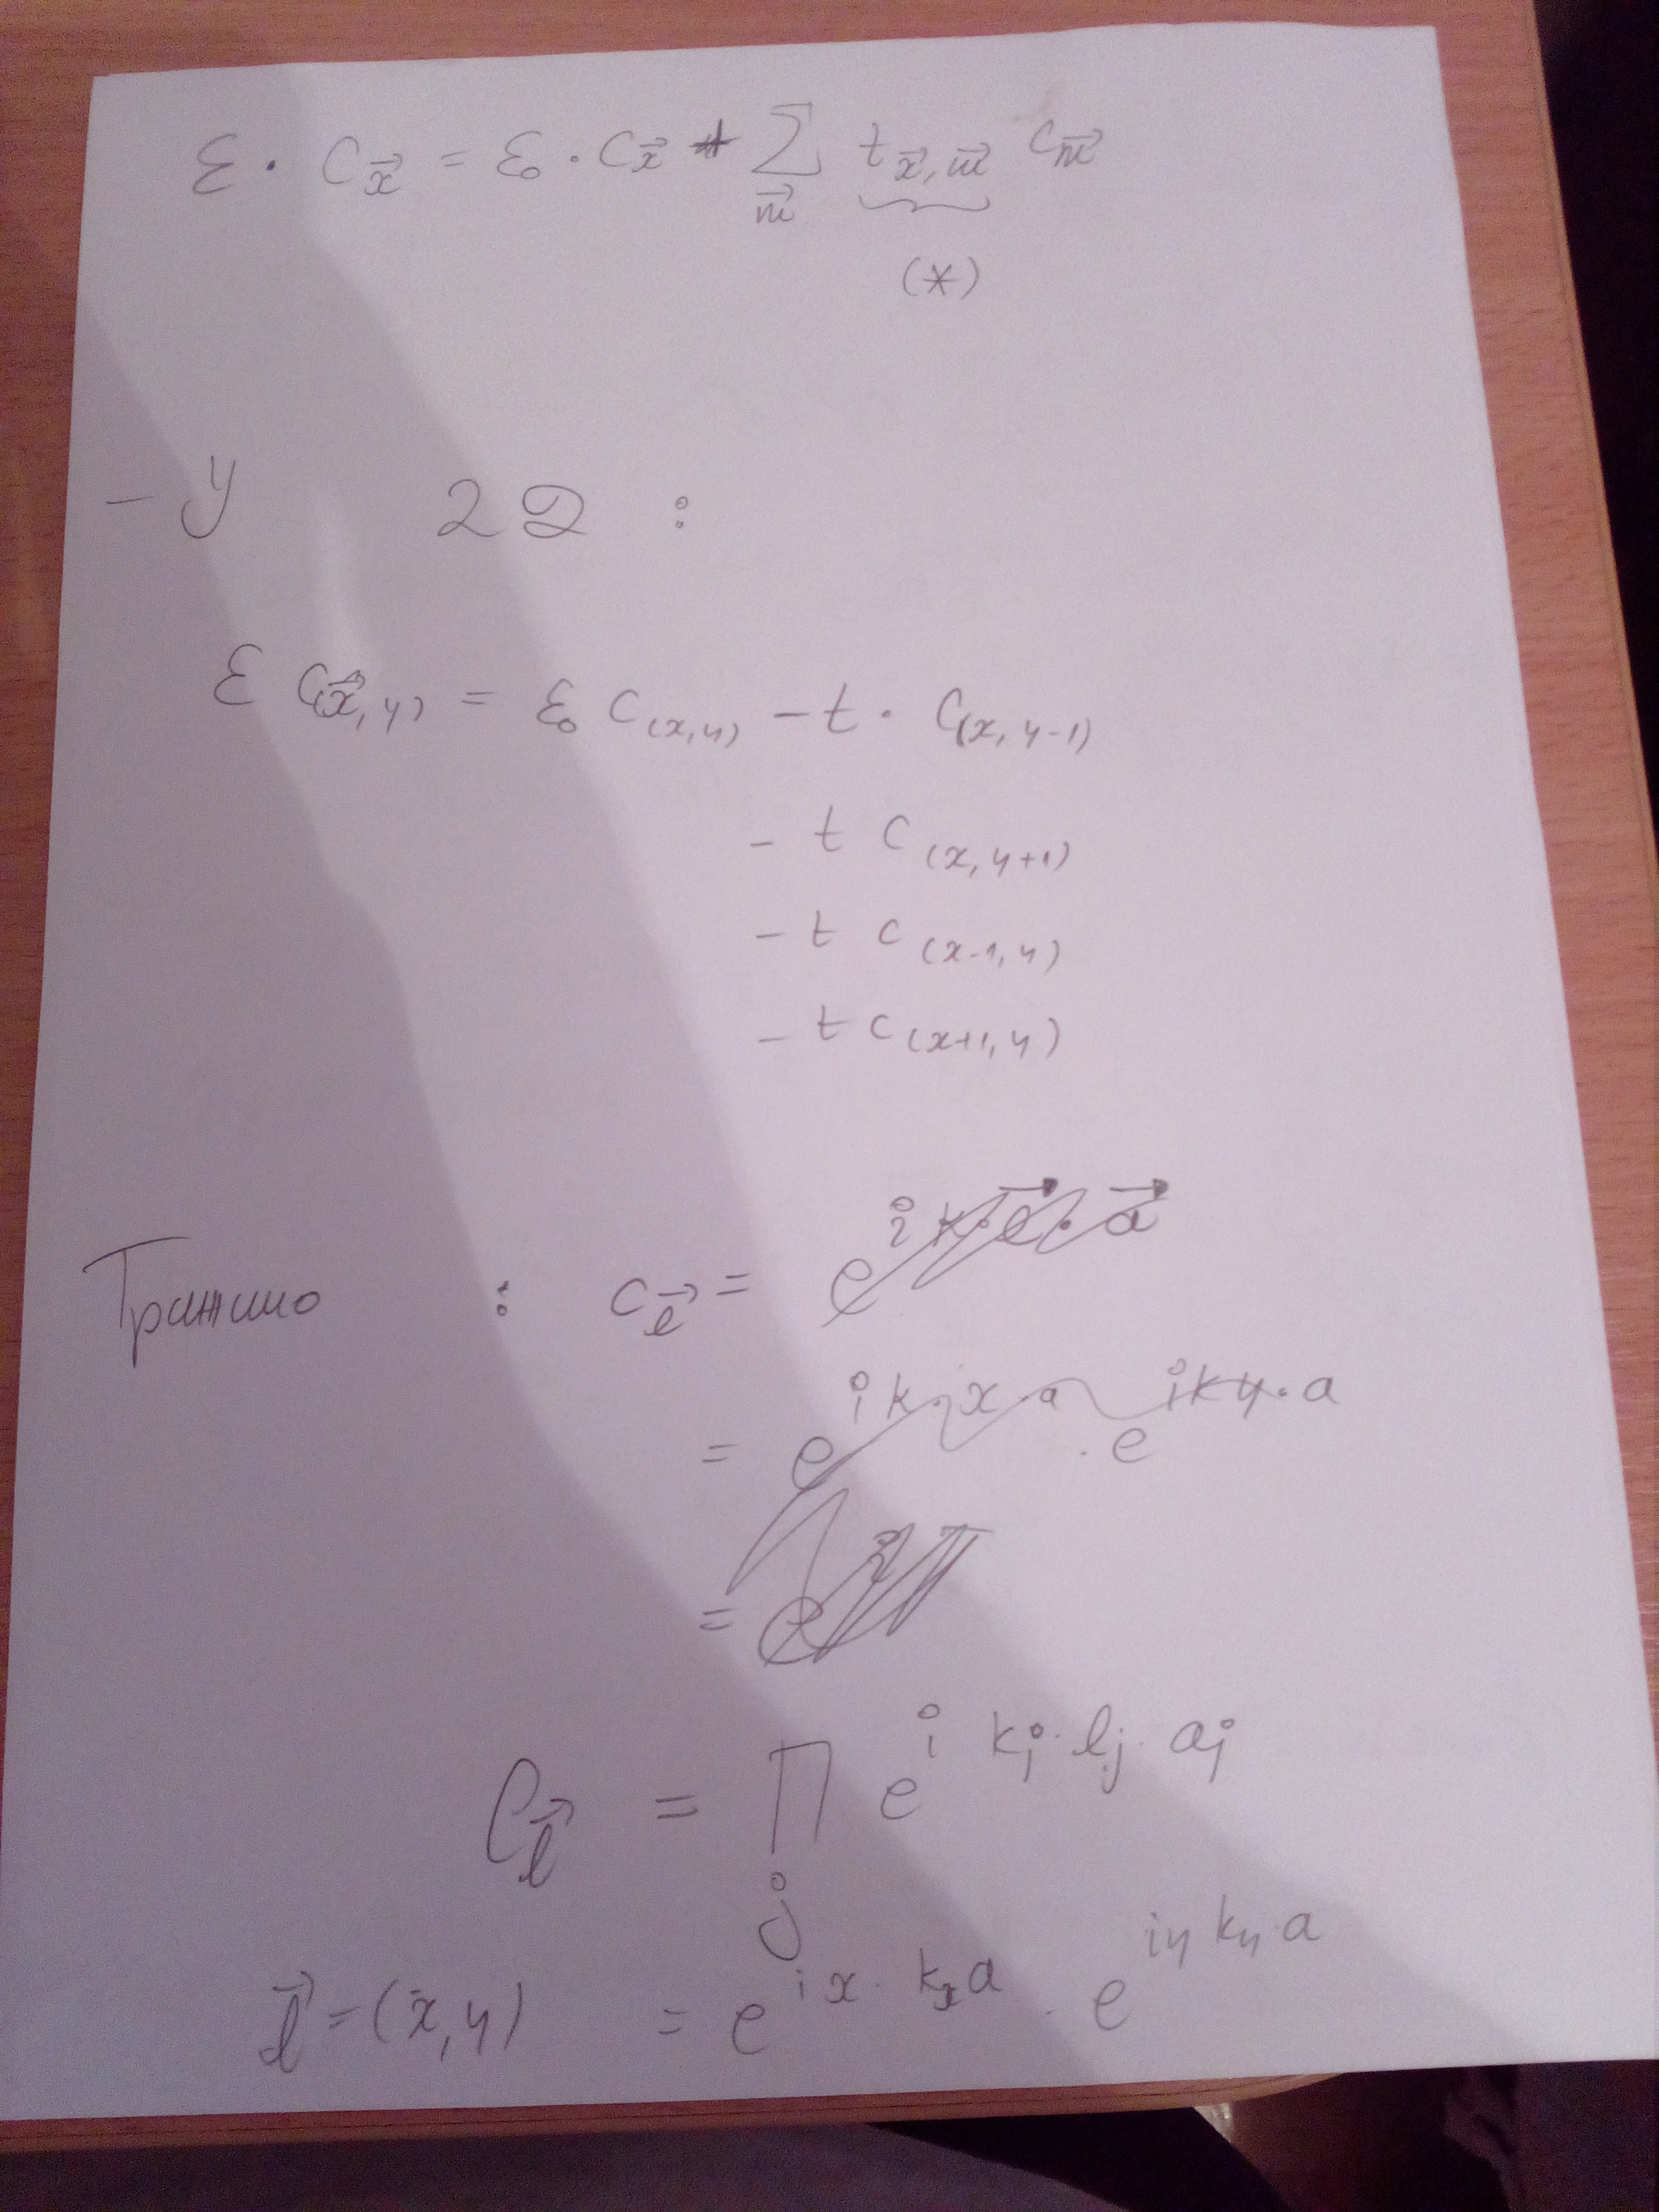 ε · C_x⃗ = ε₀ · C_x⃗ + Σ_m⃗ t_x⃗,m⃗ C_m⃗
(*)
– У 2D :
ε C_(x⃗,y) = ε₀ C_(x,y) – t · C_(x,y-1)
– t C_(x,y+1)
– t C_(x-1,y)
– t C_(x+1,y)
Тражимо : C_l⃗ =
= e^(i k·x·a) · e^(i k y·a)
=
C_l⃗ = ∏_j e^(i k_j·l_j·a_j)
l⃗ = (x,y) = e^(i x·k_x a) · e^(i y k_y a)